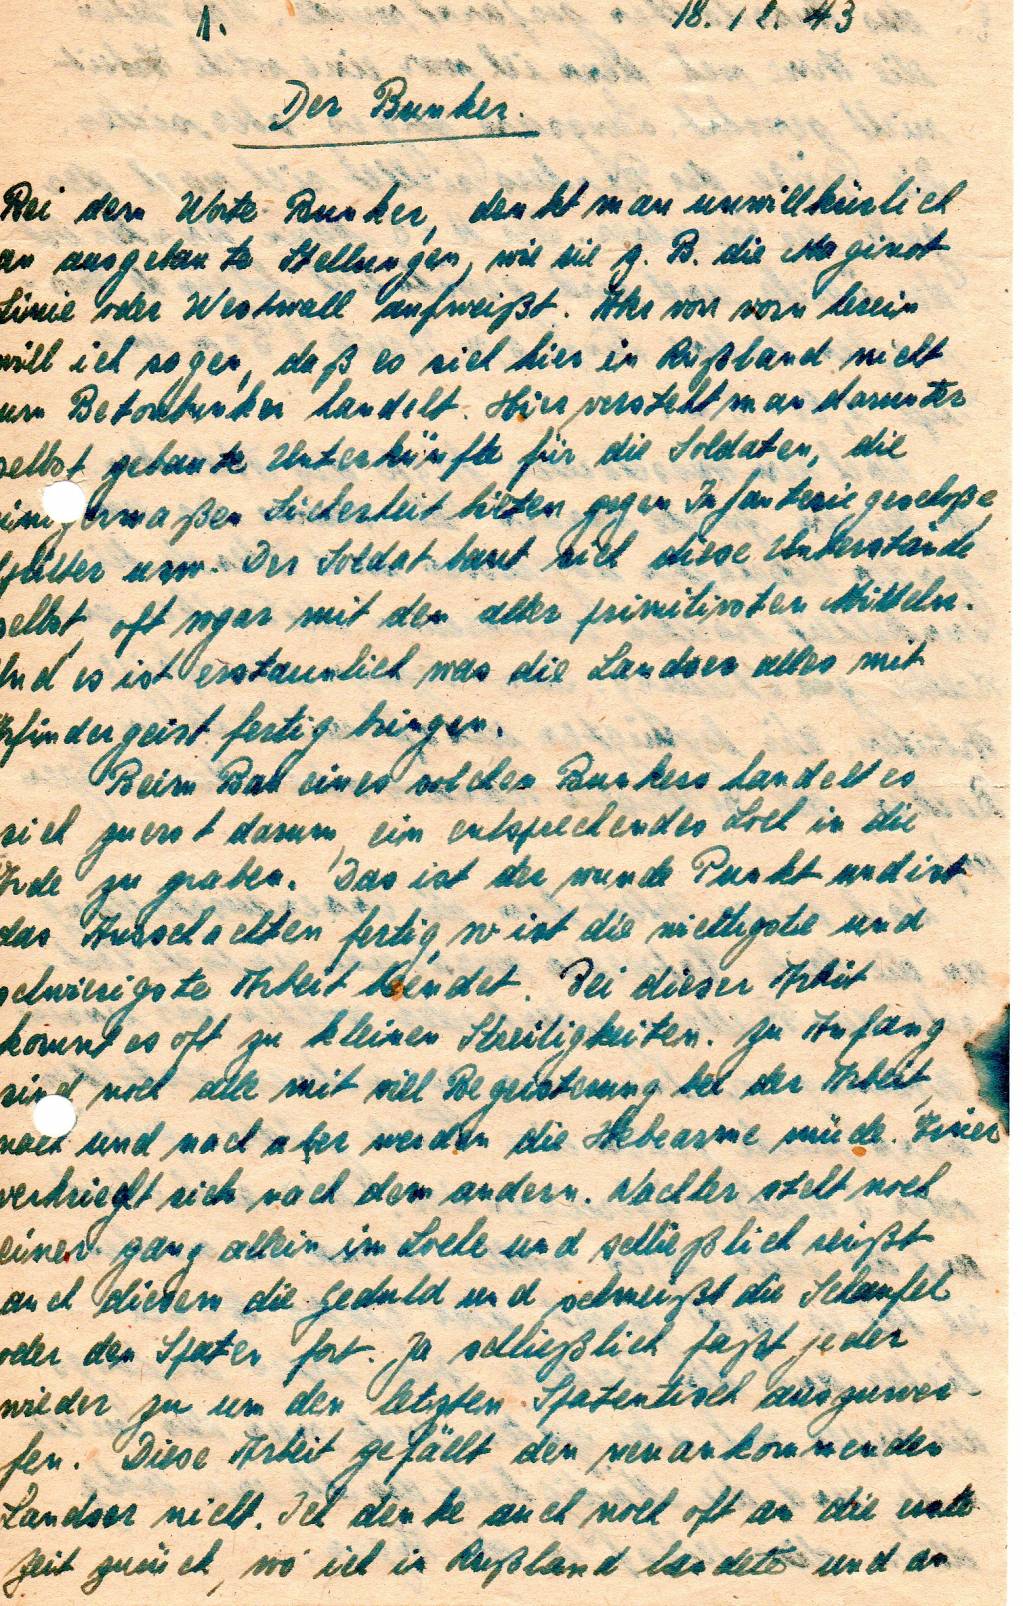 1. 18.12.43
Der Bunker.
Bei dem Worte Bunker, denkt man unwillkürlich
an ausgebaute Stellungen, wie sie z. B. die Maginot
Linie oder Westwall aufweißt. Aber von vorn herein
will ich sagen, daß es sich hier in Rußland nicht
um Betonbunker handelt. Hier versteht man darunter
selbst gebaute Unterkünfte für die Soldaten, die
einigermaßen Sicherheit bieten gegen Infanteriegeschoße,
Splitter usw. Der Soldat baut sich diese Unterstände
selbst, oft sogar mit den aller primitivsten Mitteln.
Und es ist erstaunlich was die Landser alles mit
Erfindergeist fertig bringen.
Beim Bau eines solchen Bunkers handelt es
sich zuerst darum, ein entsprechendes Loch in die
Erde zu graben. Das ist der wunde Punkt und ist
das Ausschachten fertig, so ist die wichtigste und
schwierigste Arbeit beendet. Bei dieser Arbeit
kommt es oft zu kleinen Streitigkeiten. Zu Anfang
sind noch alle mit viel Begeisterung bei der Arbeit,
nach und nach aber werden die Hebearme müde. Einer
verkriecht sich nach dem andern. Nachher steht noch
einer ganz allein im Loche und schließlich reißt
auch diesem die Geduld und schmeißt die Schaufel
oder den Spaten fort. Ja schließlich faßt jeder
wieder zu um den letzten Spatenstich auszuwer-
fen. Diese Arbeit gefällt den neuankommenden
Landser nicht. Ich denke auch noch oft an die erste
Zeit zurück, wo ich in Rußland landete und an